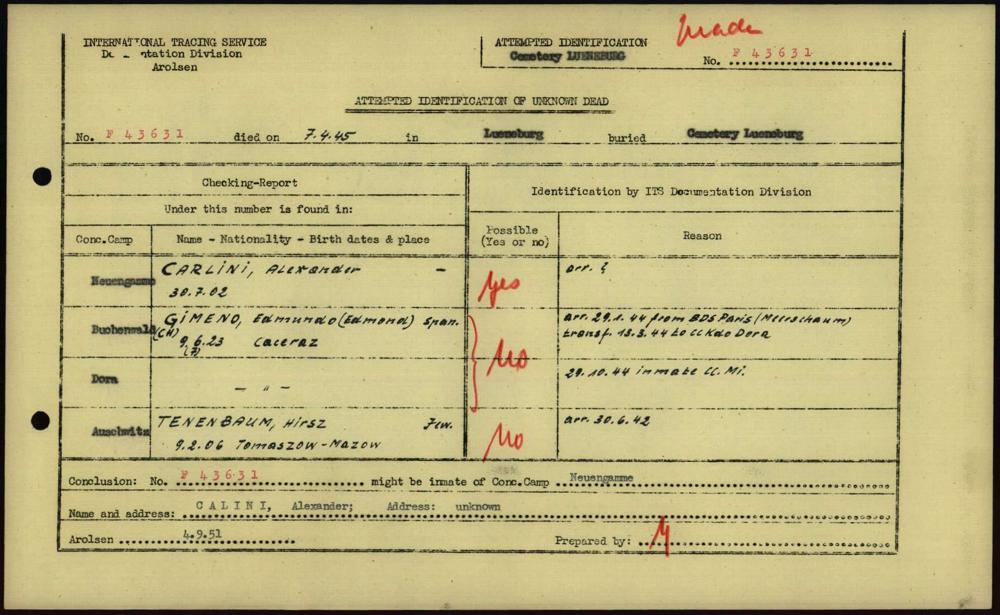 made
INTERNATIONAL TRACING SERVICE
Documentation Division
Arolsen
ATTEMPTED IDENTIFICATION
Cemetery LUENEBURG
No. F 43631
ATTEMPTED IDENTIFICATION OF UNKNOWN DEAD
No. F 43631 died on 7.4.45 in Lueneburg buried Cemetery Lueneburg
Checking-Report
Under this number is found in:
Identification by ITS Documentation Division
Conc.Camp Name - Nationality - Birth dates & place Possible (Yes or no) Reason
Neuengamme CARLINI, Alexander - yes arr. ?
30.7.02
Buchenwald GIMENO, Edmundo (Edmond) Span. arr. 29.1.44 from BDS Paris (Meerschaum)
(CH) 9.6.23 Caceraz No transf. 13.3.44 to Kdo Dora
(7)
Dora - " - 29.10.44 inmate Mi.
Auschwitz TENENBAUM, Hirsz Jew. No arr. 30.6.42
9.2.06 Tomaszow-Mazow
Conclusion: No. F 43631 might be inmate of Conc.Camp Neuengamme
Name and address: CALINI, Alexander; Address: unknown
Arolsen 4.9.51 Prepared by: